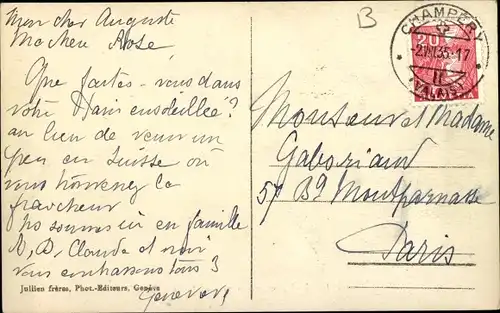 B
Mon cher Auguste
Ma chère Rose
Que faites-vous dans
votre Paris ensoleillée?
au lieu de venir un
peu en Suisse où
vous trouverez la
fraicheur
sommes ici en famille
Claude et moi
vous embrassons tous 3
Jullien frères, Phot.-Editeurs, Genève
CHAMPÉRY
20
35-17
(VALAIS)
Monsieur et Madame
Gaboriaud
57 Bd Montparnasse
Paris